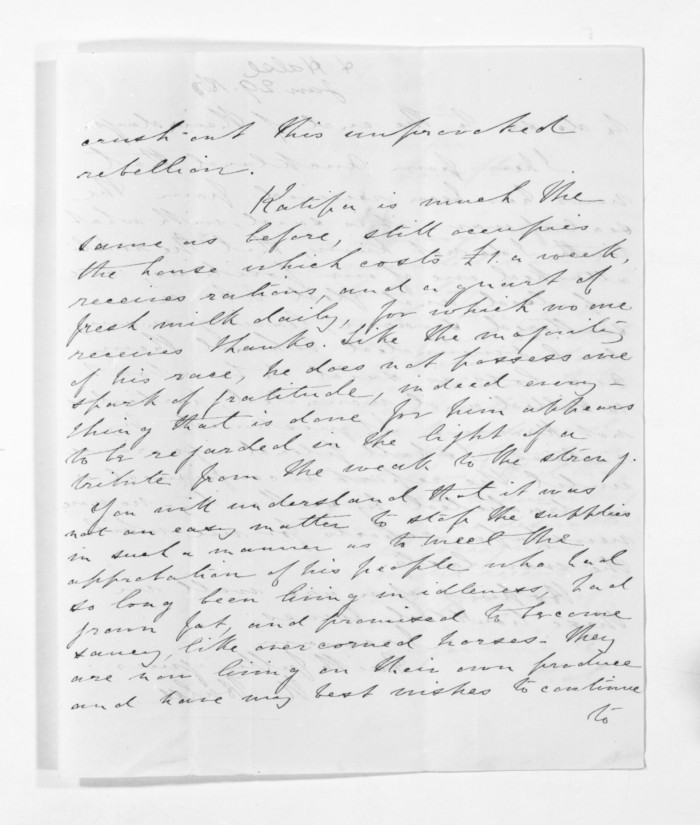 H Halse
Jan 29. 
crush out this unprovoked
rebellion.
Katipa is much the
same as before, still occupies
the house which costs £1 a week,
receives rations, and a quart of
fresh milk daily, for which no one
receives thanks. Like the majority
of his race, he does not possess one
spark of gratitude, indeed every-
thing that is done for him appears
to be regarded in the light of a
tribute from the weak to the strong.
You will understand that it was
not an easy matter to stop the supplies
in such a manner as to meet the
approbation of his people who had
so long been living in idleness, had
grown fat, and promised to become
saucy, like overcorned horses. They
are now living on their own produce
and have my best wishes to continue
to